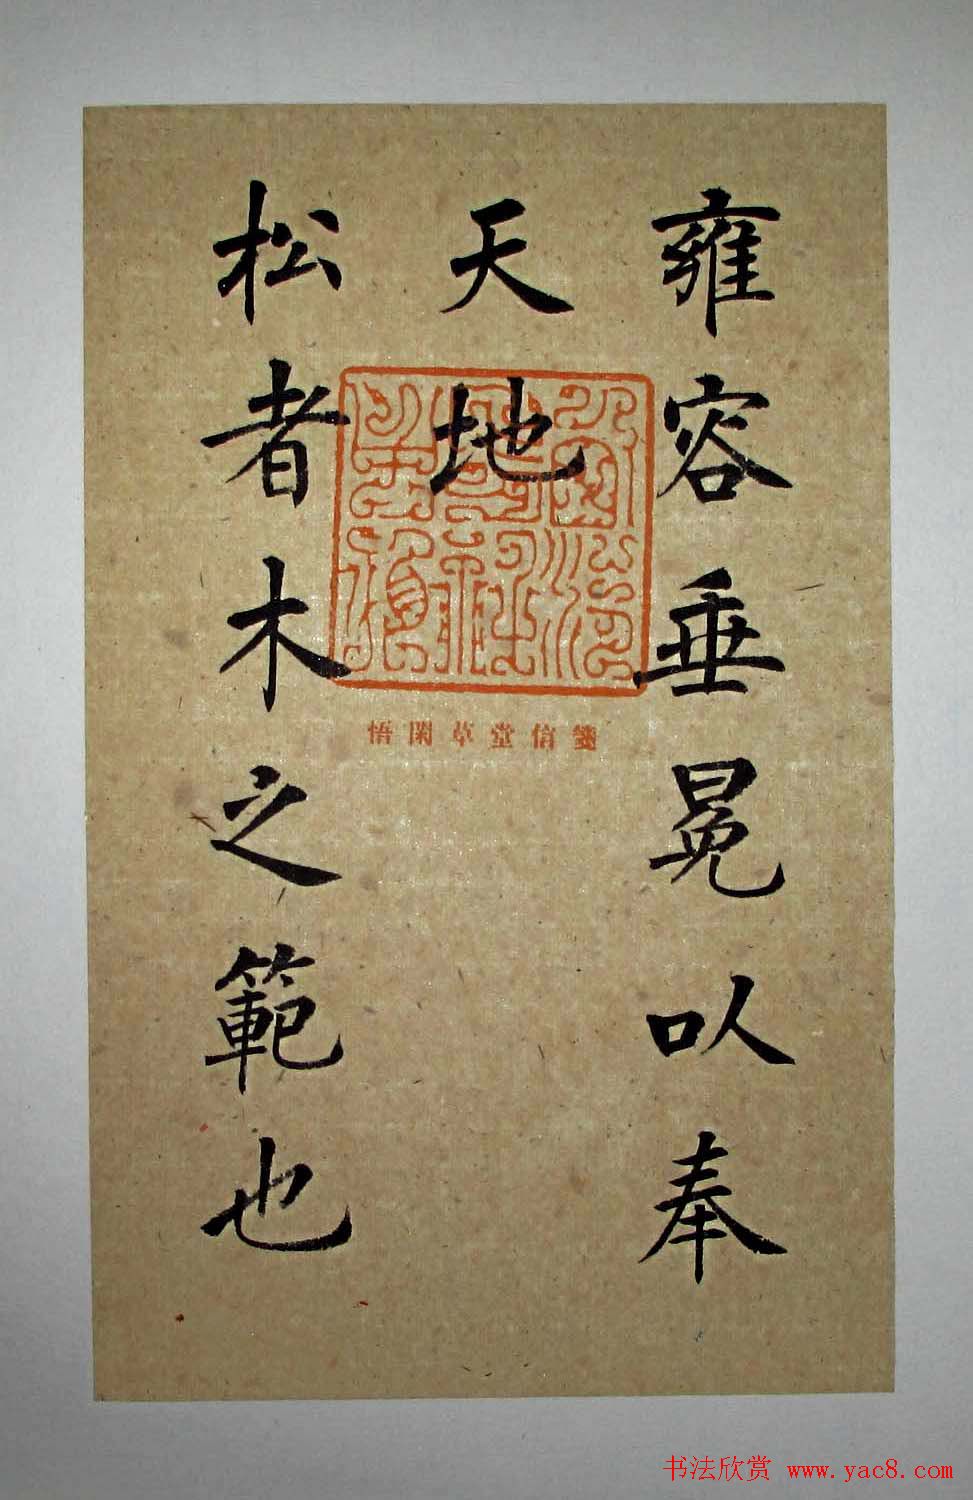 雍容垂冕以奉
天地
松者木之範也
悟閑草堂信箋
书法欣赏 www.yac8.com